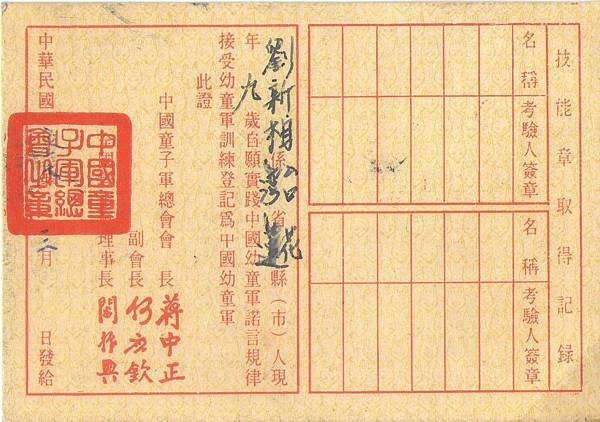 技能章取得記錄
名稱 考驗人簽章
名稱 考驗人簽章
劉新 係 灣省花蓮縣(市)人現
年九歲自願實踐中國幼童軍諾言規律
接受幼童軍訓練登記為中國幼童軍
此證
中國童子軍總會會長 蔣中正
副會長 何應欽
理事長 閻振興
中華民國 月 日發給
中國童
子軍總
會之章